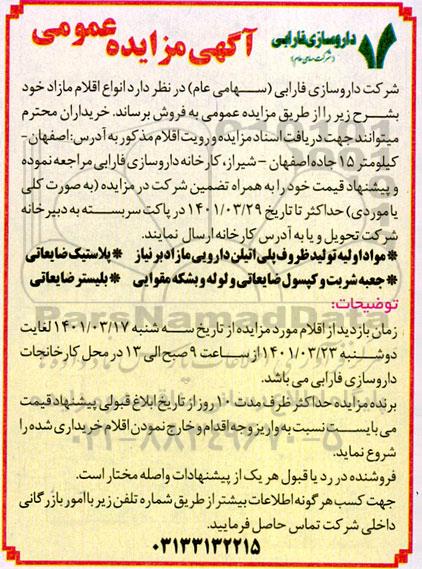 داروسازی فارابی
(شرکت سهامی عام)
آگهی مزایده عمومی
شرکت داروسازی فارابی (سهامی عام) در نظر دارد انواع اقلام مازاد خود
بشرح زیر را از طریق مزایده عمومی به فروش برساند. خریداران محترم
میتوانند جهت دریافت اسناد مزایده و رویت اقلام مذکور به آدرس: اصفهان-
کیلومتر ۱۵ جاده اصفهان – شیراز، کارخانه داروسازی فارابی مراجعه نموده
و پیشنهاد قیمت خود را به همراه تضمین شرکت در مزایده (به صورت کلی
یا موردی) حداکثر تا تاریخ ۱۴۰۱/۰۳/۲۹ در پاکت سربسته به دبیرخانه
شرکت تحویل و یا به آدرس کارخانه ارسال نمایند.
*مواد اولیه تولید ظروف پلی اتیلن دارویی مازاد بر نیاز *پلاستیک ضایعاتی
*جعبه شربت و کپسول ضایعاتی و لوله و بشکه مقوایی *بلیستر ضایعاتی
توضیحات:
زمان بازدید از اقلام مورد مزایده از تاریخ سه شنبه ۱۴۰۱/۰۳/۱۷ لغایت
دوشنبه ۱۴۰۱/۰۳/۲۳ از ساعت ۹ صبح الی ۱۳ در محل کارخانجات
داروسازی فارابی می باشد.
برنده مزایده حداکثر ظرف مدت ۱۰ روز از تاریخ ابلاغ قبولی پیشنهاد قیمت
می بایست نسبت به واریز وجه اقدام و خارج نمودن اقلام خریداری شده را
شروع نماید.
فروشنده در رد یا قبول هر یک از پیشنهادات واصله مختار است.
جهت کسب هرگونه اطلاعات بیشتر از طریق شماره تلفن زیر با امور بازرگانی
داخلی شرکت تماس حاصل فرمایید.
۰۳۱۳۳۱۳۲۲۱۵
ParsNamadData
۰۲۱-۸۸۳۴۹۶۷۰-۵